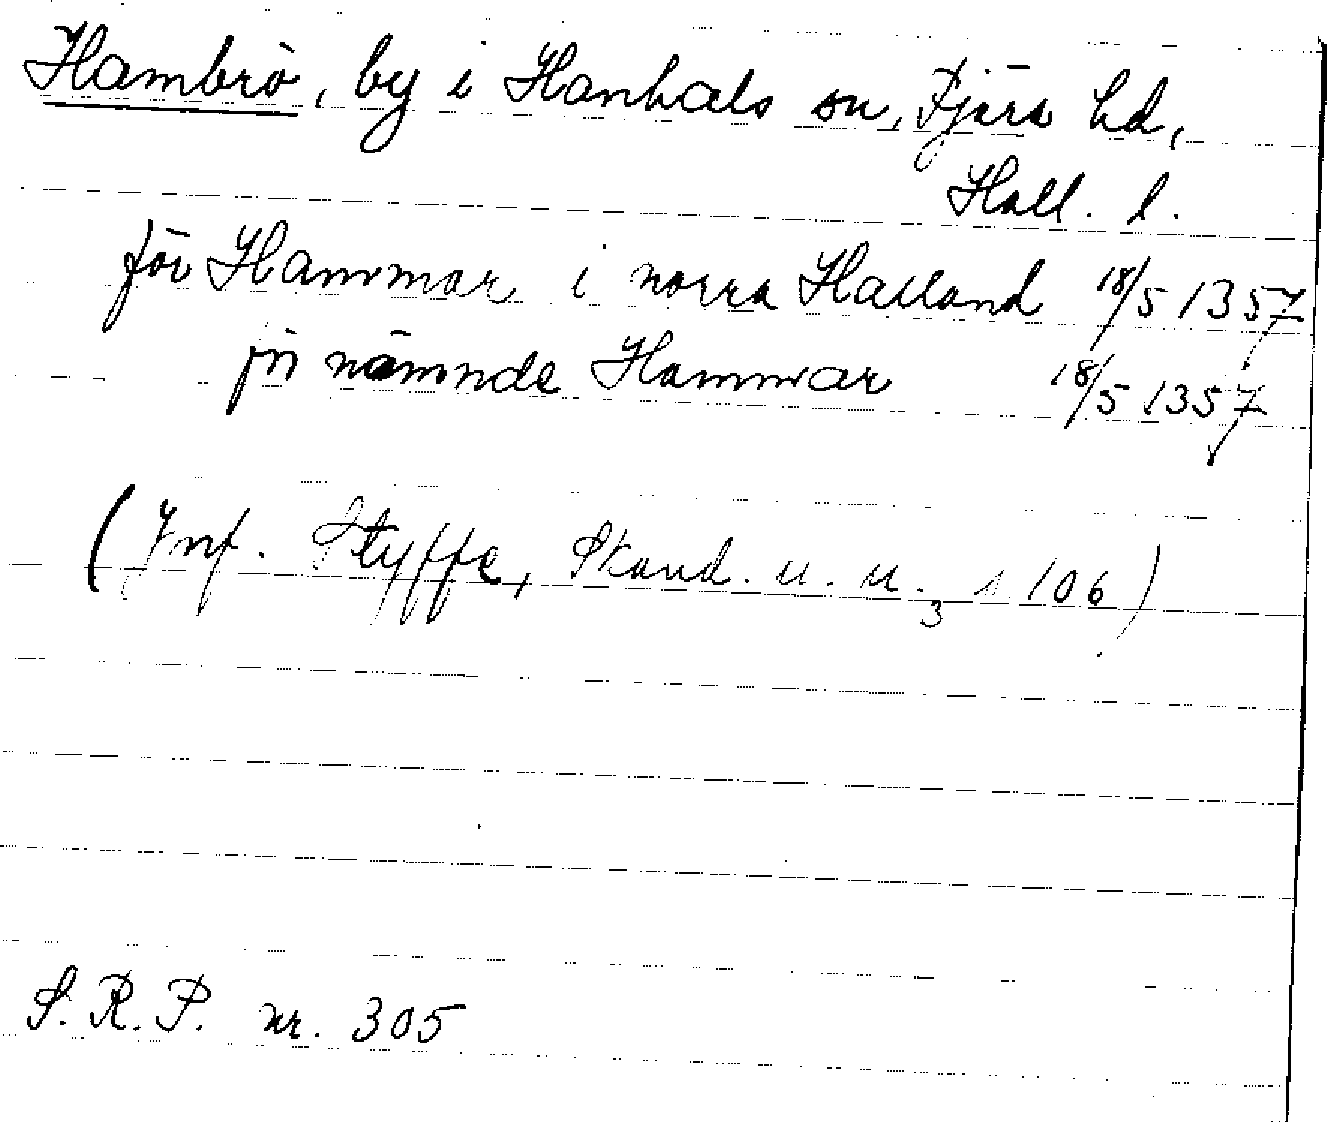 Hambrö, by i Hanhals sn, Fjäre hd,
Hall. l.
för Hammar i norra Halland 18/5 1357
för nämnde Hammar 18/5 1357
(Jmf. Styffe, Skand. u. u. 3 s 106)
S. R. P. nr. 305